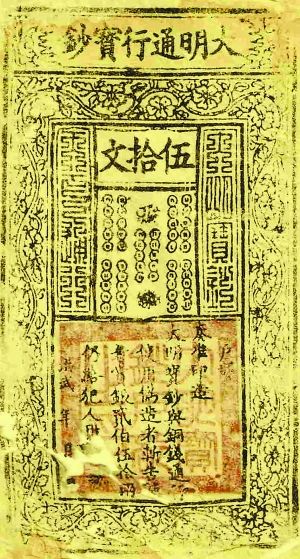 大明通行寶鈔
伍拾文
大明寶鈔
天下通行
戶部
奏准印造
大明寶鈔與銅錢通
使用偽造者斬告
賞銀貳伯伍拾兩
仍給犯人財
洪武 年 月